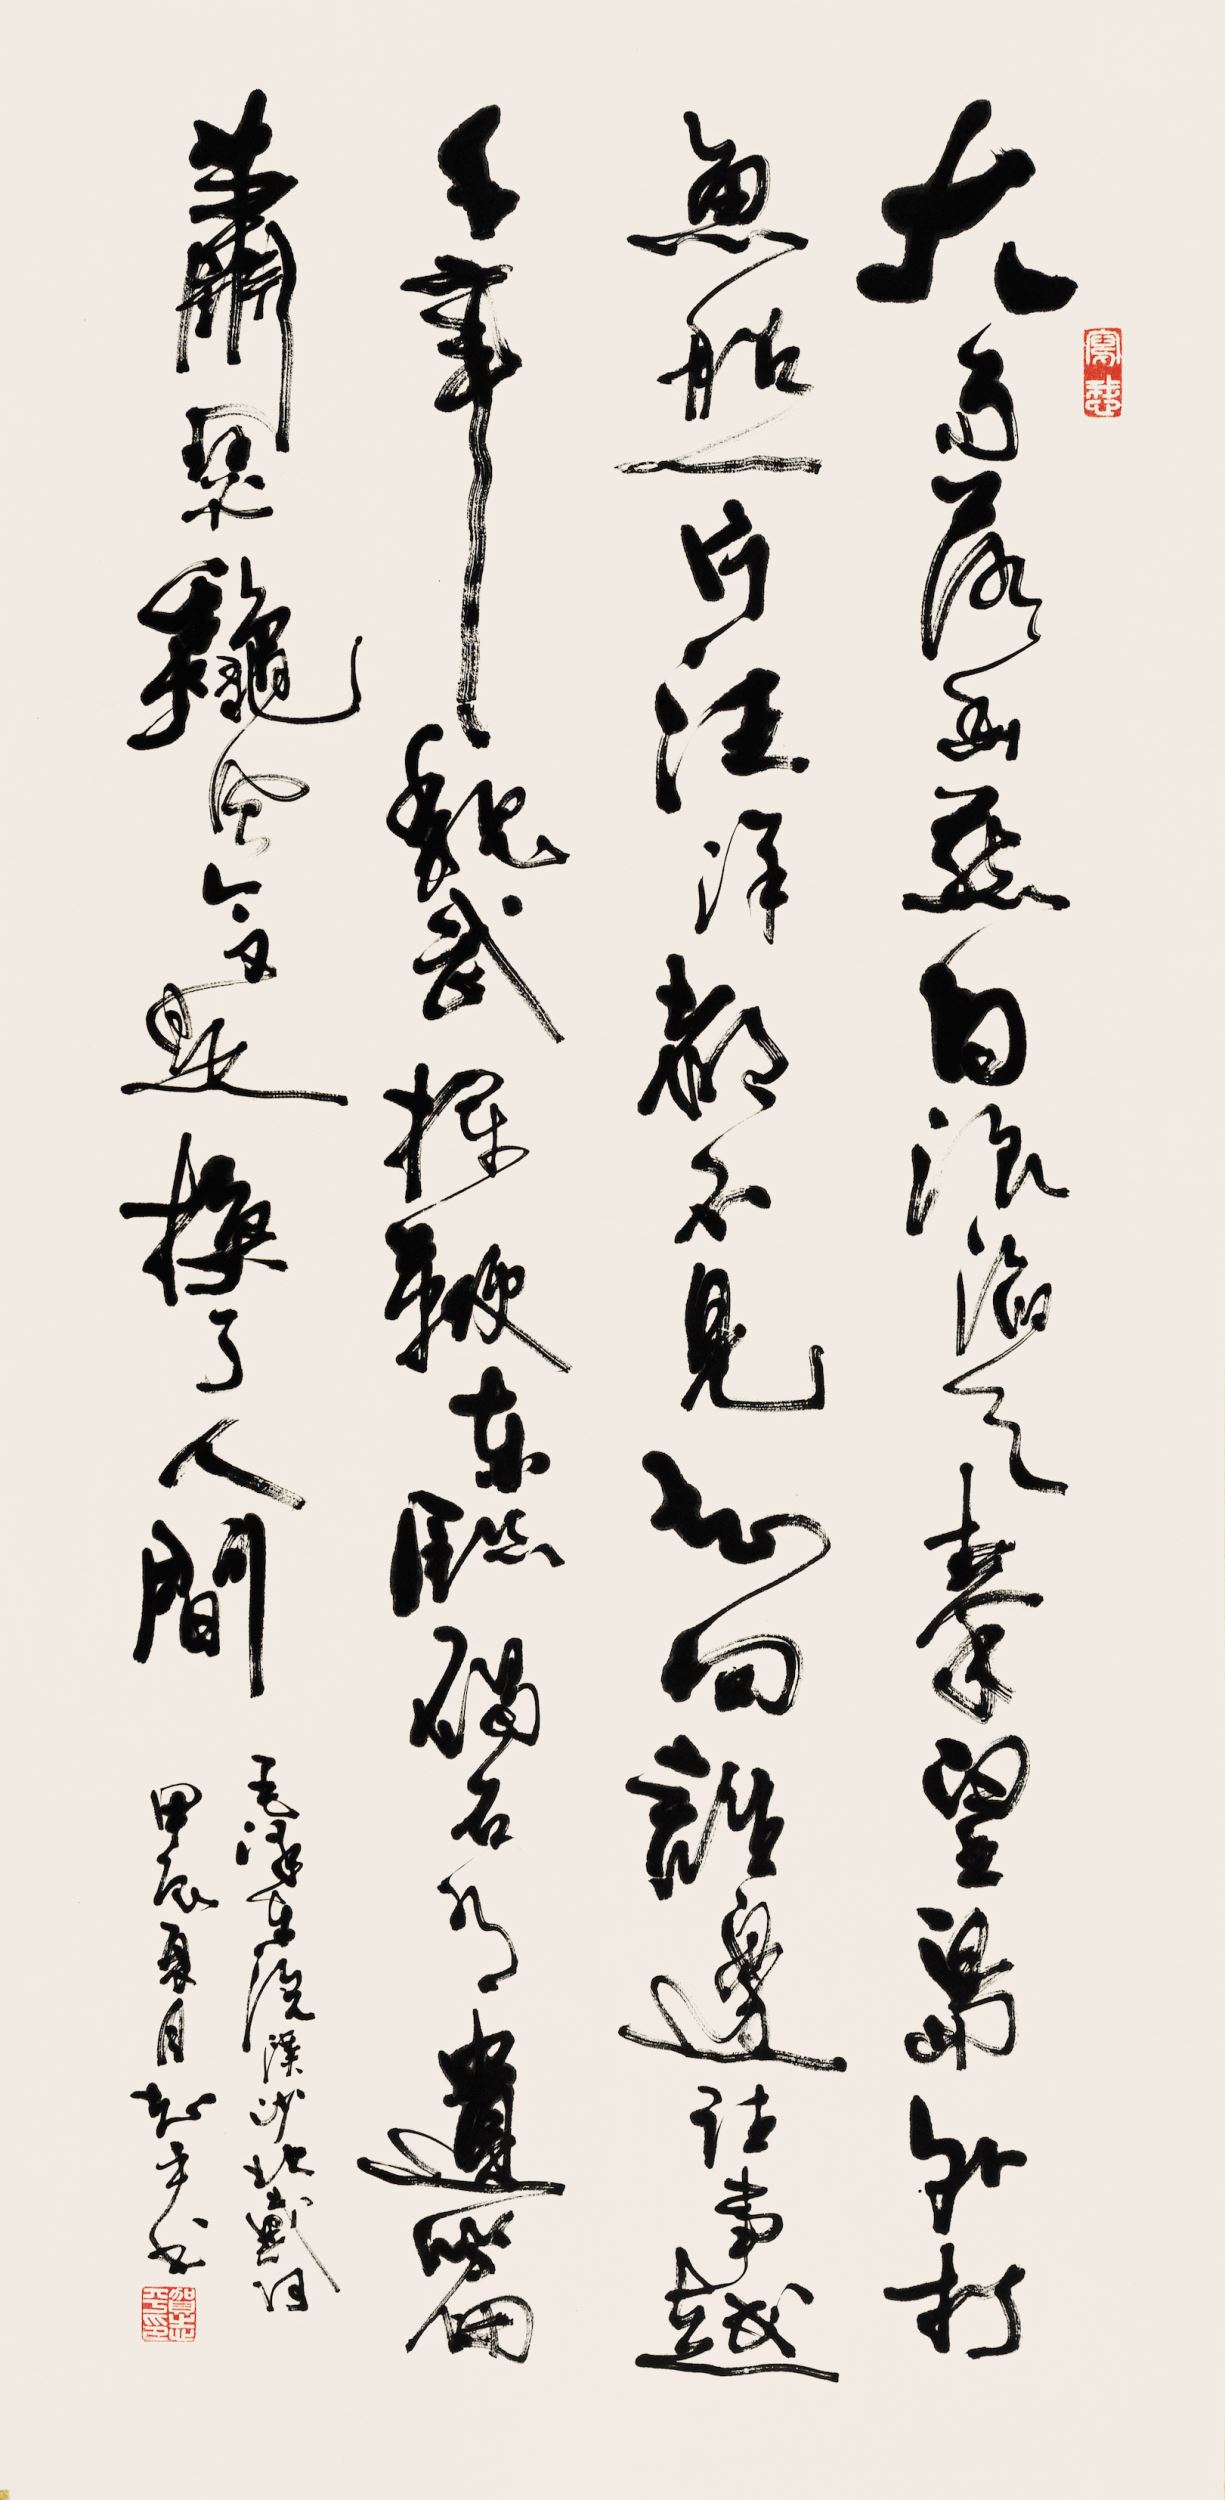 大雨落幽燕白浪滔天秦皇島外打
魚船一片汪洋都不見知向誰邊往事越
千年魏武揮鞭東臨碣石有遺篇
蕭瑟龝風今又是換了人間
毛澤東浣溪沙北戴河
甲辰夏月志平書